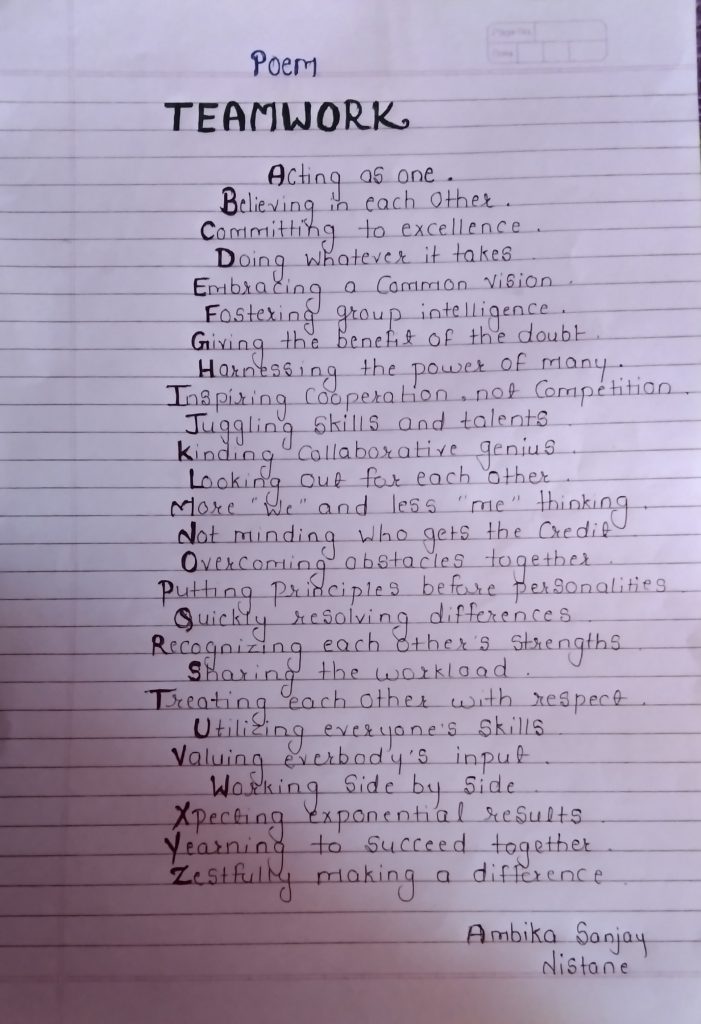 Page No.
Date
Poem
TEAMWORK
Acting as one.
Believing in each other.
Committing to excellence.
Doing whatever it takes
Embracing a common vision.
Fostering group intelligence.
Giving the benefit of the doubt.
Harnessing the power of many.
Inspiring cooperation, not competition.
Juggling skills and talents
Kinding collaborative genius.
Looking out for each other.
More "We" and less "me" thinking.
Not minding who gets the credit
Overcoming obstacles together.
Putting principles before personalities
Quickly resolving differences.
Recognizing each other's strengths
Sharing the workload.
Treating each other with respect.
Utilizing everyone's skills
Valuing everbody's input.
Working side by side
Xpecting exponential results
Yearning to succeed together.
Zestfully making a difference
Ambika Sanjay
Nistane